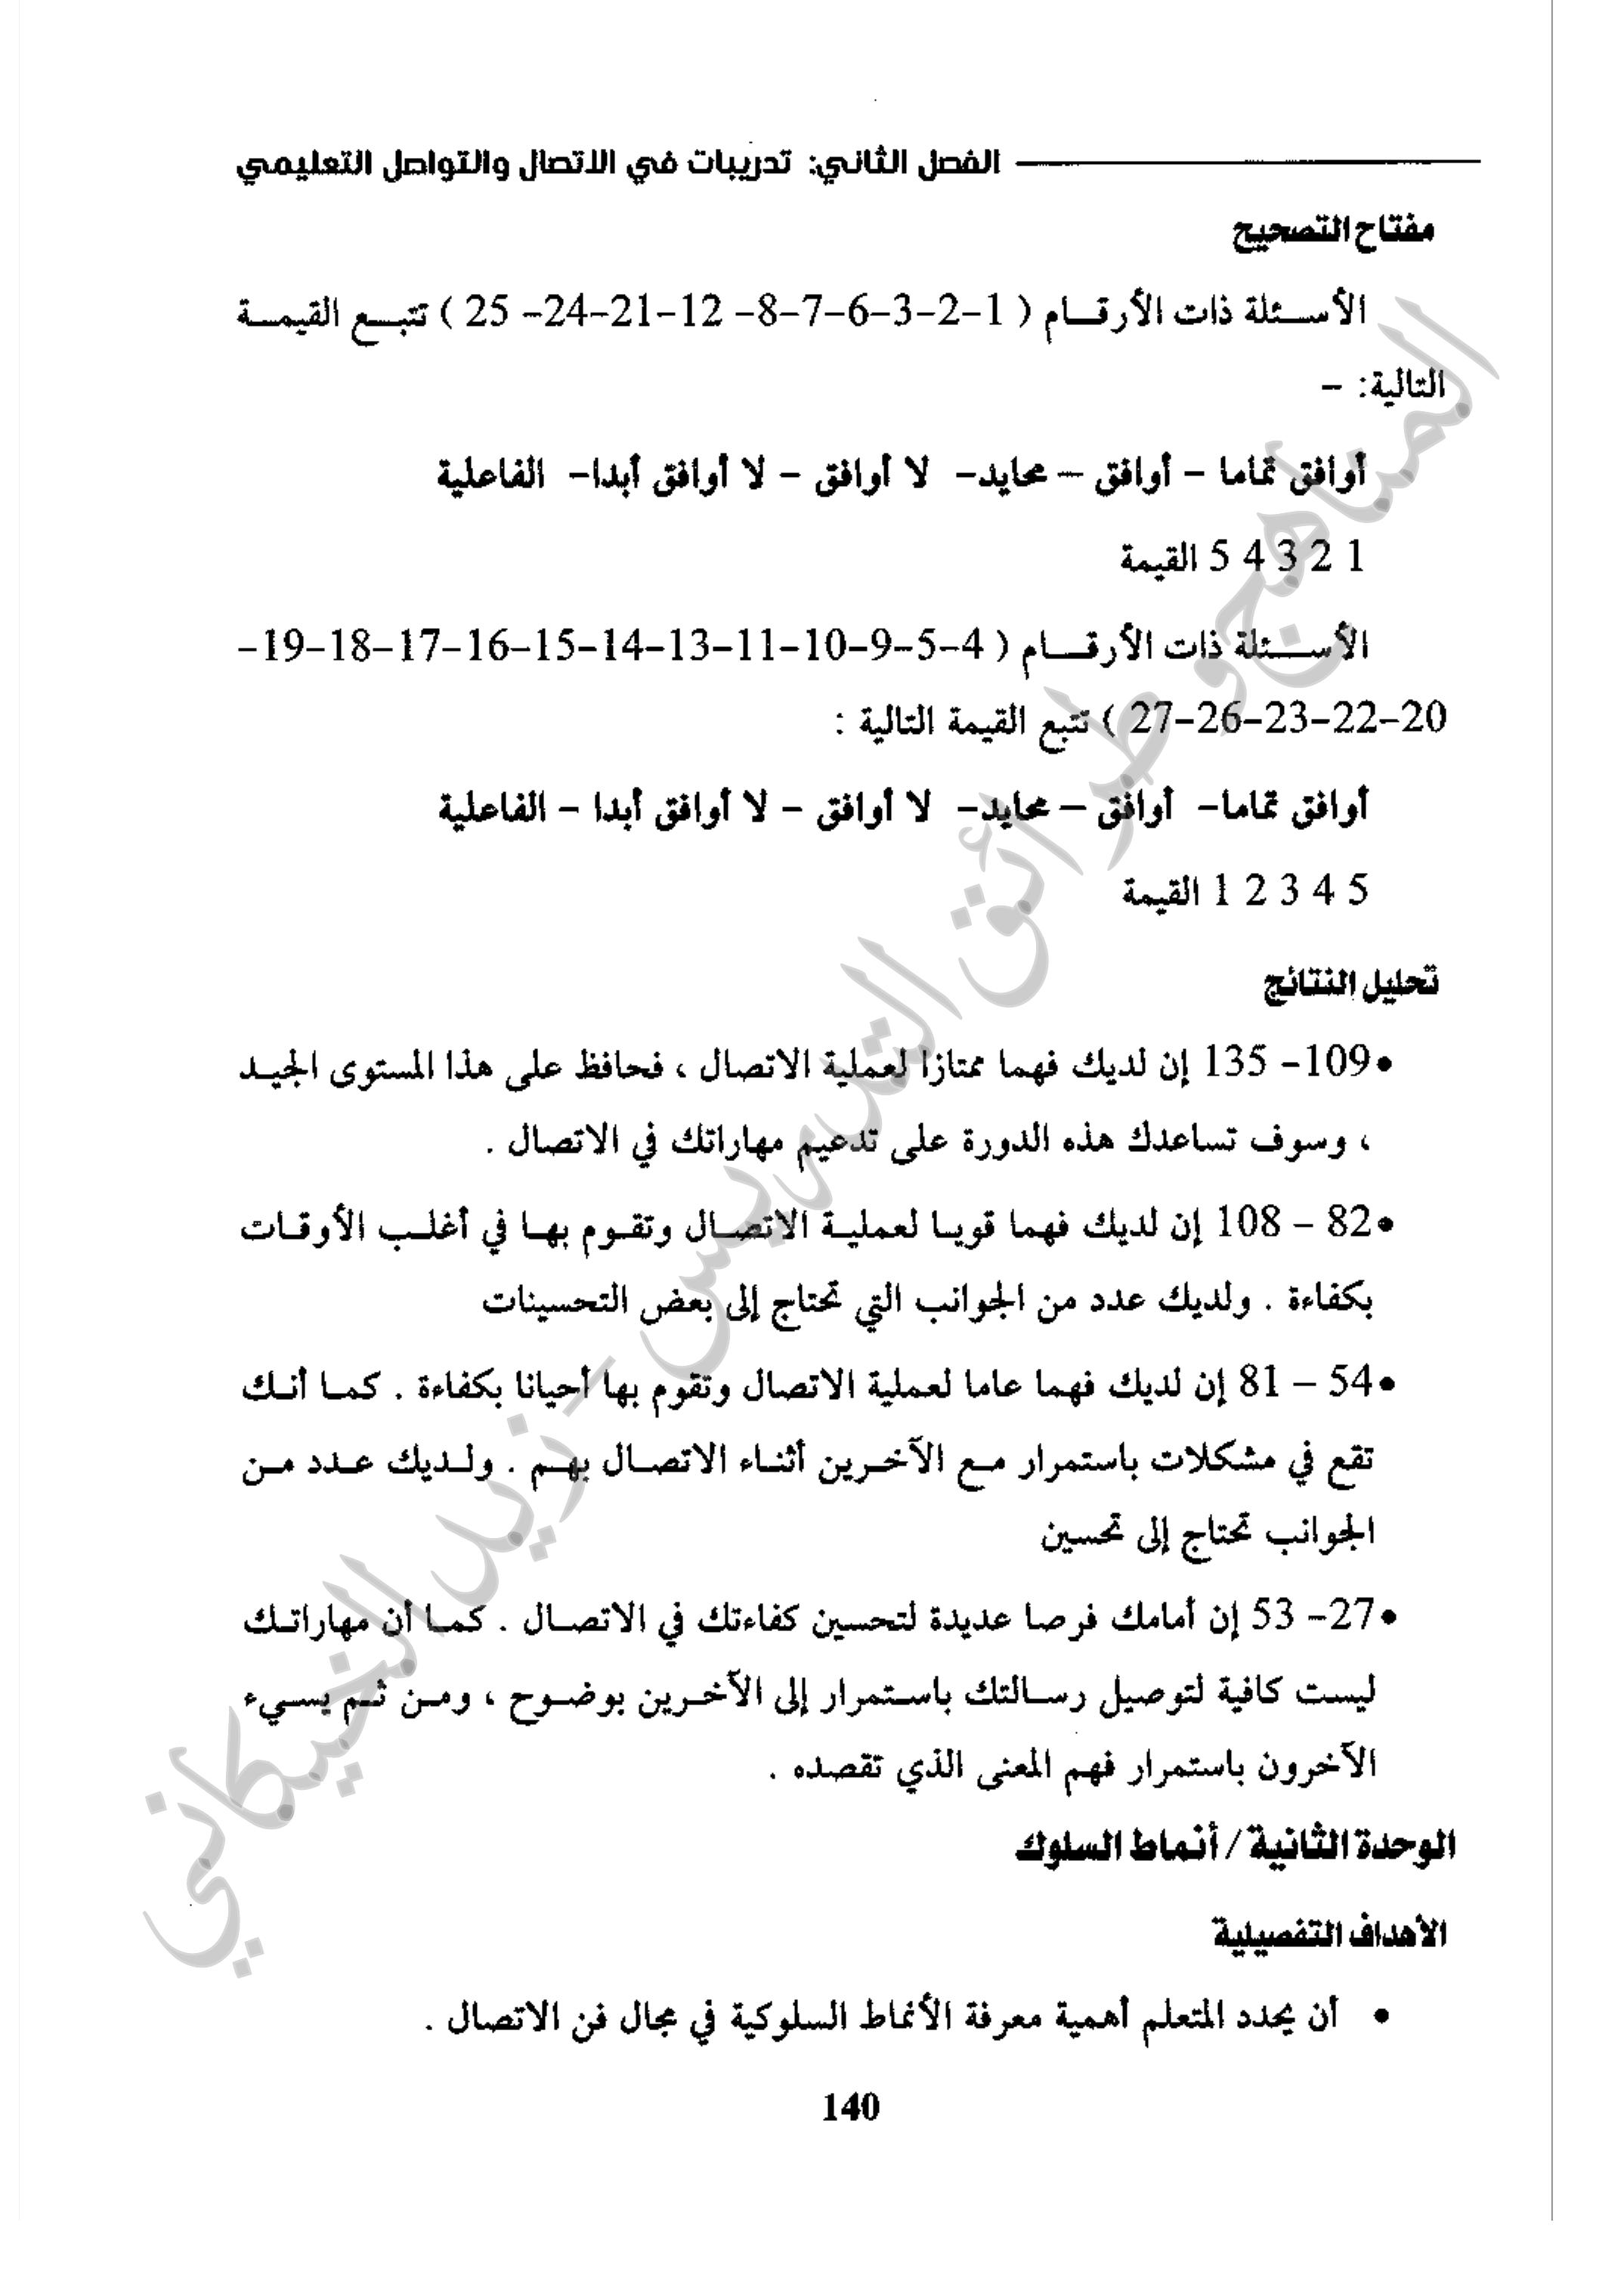 الفصل الثاني: تدريبات في الاتصال والتواصل التعليمي
مفتاح التصحيح
الأسئلة ذات الأرقام ( 1-2-3-6-7-8- 12-21-24- 25 ) تتبع القيمة
التالية: -
أوافق تماما - أوافق - محايد- لا أوافق - لا أوافق أبدا- الفاعلية
1 2 3 4 5 القيمة
الأسئلة ذات الأرقام ( 4-5-9-10-11-13-14-15-16-17-18-19-
20-22-23-26-27 ) تتبع القيمة التالية :
أوافق تماما- أوافق - محايد- لا أوافق - لا أوافق أبدا - الفاعلية
5 4 3 2 1 القيمة
تحليل النتائج
•109- 135 إن لديك فهما ممتازا لعملية الاتصال ، فحافظ على هذا المستوى الجيد
، وسوف تساعدك هذه الدورة على تدعيم مهاراتك في الاتصال .
•82 - 108 إن لديك فهما قويا لعملية الاتصال وتقوم بها في أغلب الأوقات
بكفاءة . ولديك عدد من الجوانب التي تحتاج إلى بعض التحسينات
•54 - 81 إن لديك فهما عاما لعملية الاتصال وتقوم بها أحيانا بكفاءة . كما أنك
تقع في مشكلات باستمرار مع الآخرين أثناء الاتصال بهم . ولديك عدد من
الجوانب تحتاج إلى تحسين
•27- 53 إن أمامك فرصا عديدة لتحسين كفاءتك في الاتصال . كما أن مهاراتك
ليست كافية لتوصيل رسالتك باستمرار إلى الآخرين بوضوح ، ومن ثم يسيء
الآخرون باستمرار فهم المعنى الذي تقصده .
الوحدة الثانية / أنماط السلوك
الأهداف التفصيلية
• أن يحدد المتعلم أهمية معرفة الأنماط السلوكية في مجال فن الاتصال .
140
المناهج وطرائق التدريس - زيد الخيكاني